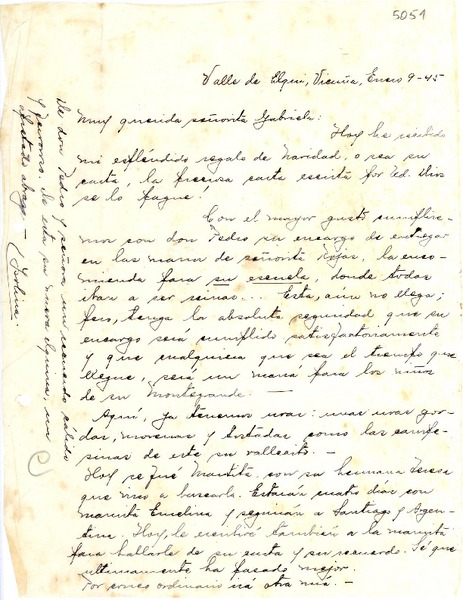 5051
Valle de Elqui, Vicuña, Enero 9-45
Muy querida señorita Gabriela:
Hoy he recibido
mi espléndido regalo de Navidad, o sea su
carta, la preciosa carta escrita por Ud. Dios
se lo pague!
Con el mayor gusto cumplire-
mos con don Pedro su encargo de entregar
en las manos de señorita Rojas, la enco-
mienda para su escuela, donde todas
iban a ser reinas... Esta, aun no llega;
pero, tenga la absoluta seguridad que su
encargo será cumplido satisfactoriamente
y que cualquiera que sea el tiempo que
llegue, será un maná para los niños
de su Montegrande. —
Aquí, ya tenemos uvas: uvas gor-
das, morenas y tostadas, como las campe-
sinas de este su vallecito. —
Hoy se fué Martita, con su hermana Teresa
que vino a buscarla. Estarán cuatro días con
mamita Emelina y seguirán a Santiago y Argen-
tina. Hoy, le escribiré también a la mamita
para hablarle de su carta y su recuerdo. Sé que
ultimamente ha pasado mejor.
Por correo ordinario irá otra mía. —
De don Pedro y señora un recuerdo cálido
y fervoroso. De esta su nueva alumna, un
apretado abrazo —